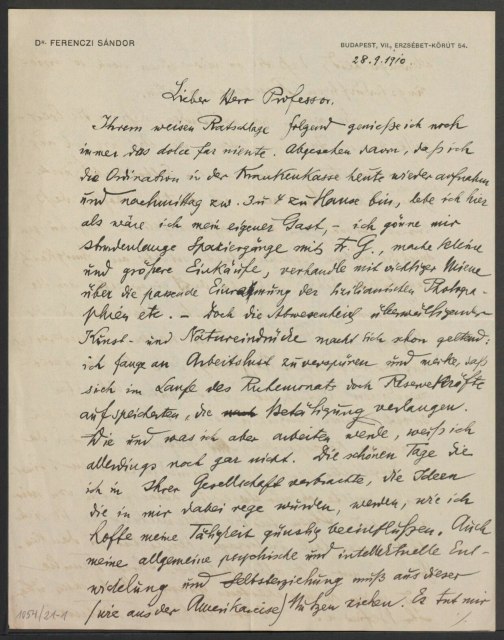 Dr. FERENCZI SÁNDOR
BUDAPEST, VII., ERZSÉBET-KÖRÚT 54.
28.9.1910.
Lieber Herr Professor.
Ihrem weisen Ratschlage folgend genieße ich noch
immer das dolce far niente. Abgesehen davon, daß ich
die Ordination in der Krankenkasse heute wieder aufnahm
und nachmittag zw. 3 u 4 zu Hause bin, lebe ich hier
als wäre ich mein eigener Gast, – ich gönne mir
stundenlange Spaziergänge mit Fr G., mache kleine
und größere Einkäufe, verhandle mit wichtiger Miene
über die passende Einrahmung der sicilianischen Photogra-
phien etc. – Doch die Abwesenheit überwältigender
Kunst- und Natureindrücke macht sich schon geltend;
ich fange an Arbeitslust zu verspüren und merke, daß
sich im Laufe des Ruhemonats doch Reservekräfte
aufspeicherten, die Betätigung verlangen.
Wie und was ich aber arbeiten werde, weiß ich
allerdings noch gar nicht. Die schönen Tage die
ich in Ihrer Gesellschaft verbrachte, die Ideen
die in mir dabei rege wurden, werden, wie ich
hoffe meine Tätigkeit günstig beeinflußen. Auch
meine allgemeine psychische und intellektuelle Ent-
wickelung und Selbsterziehung muß aus dieser
(wie aus der Amerikareise) Nutzen ziehen. Es tut mir
1054/21-1